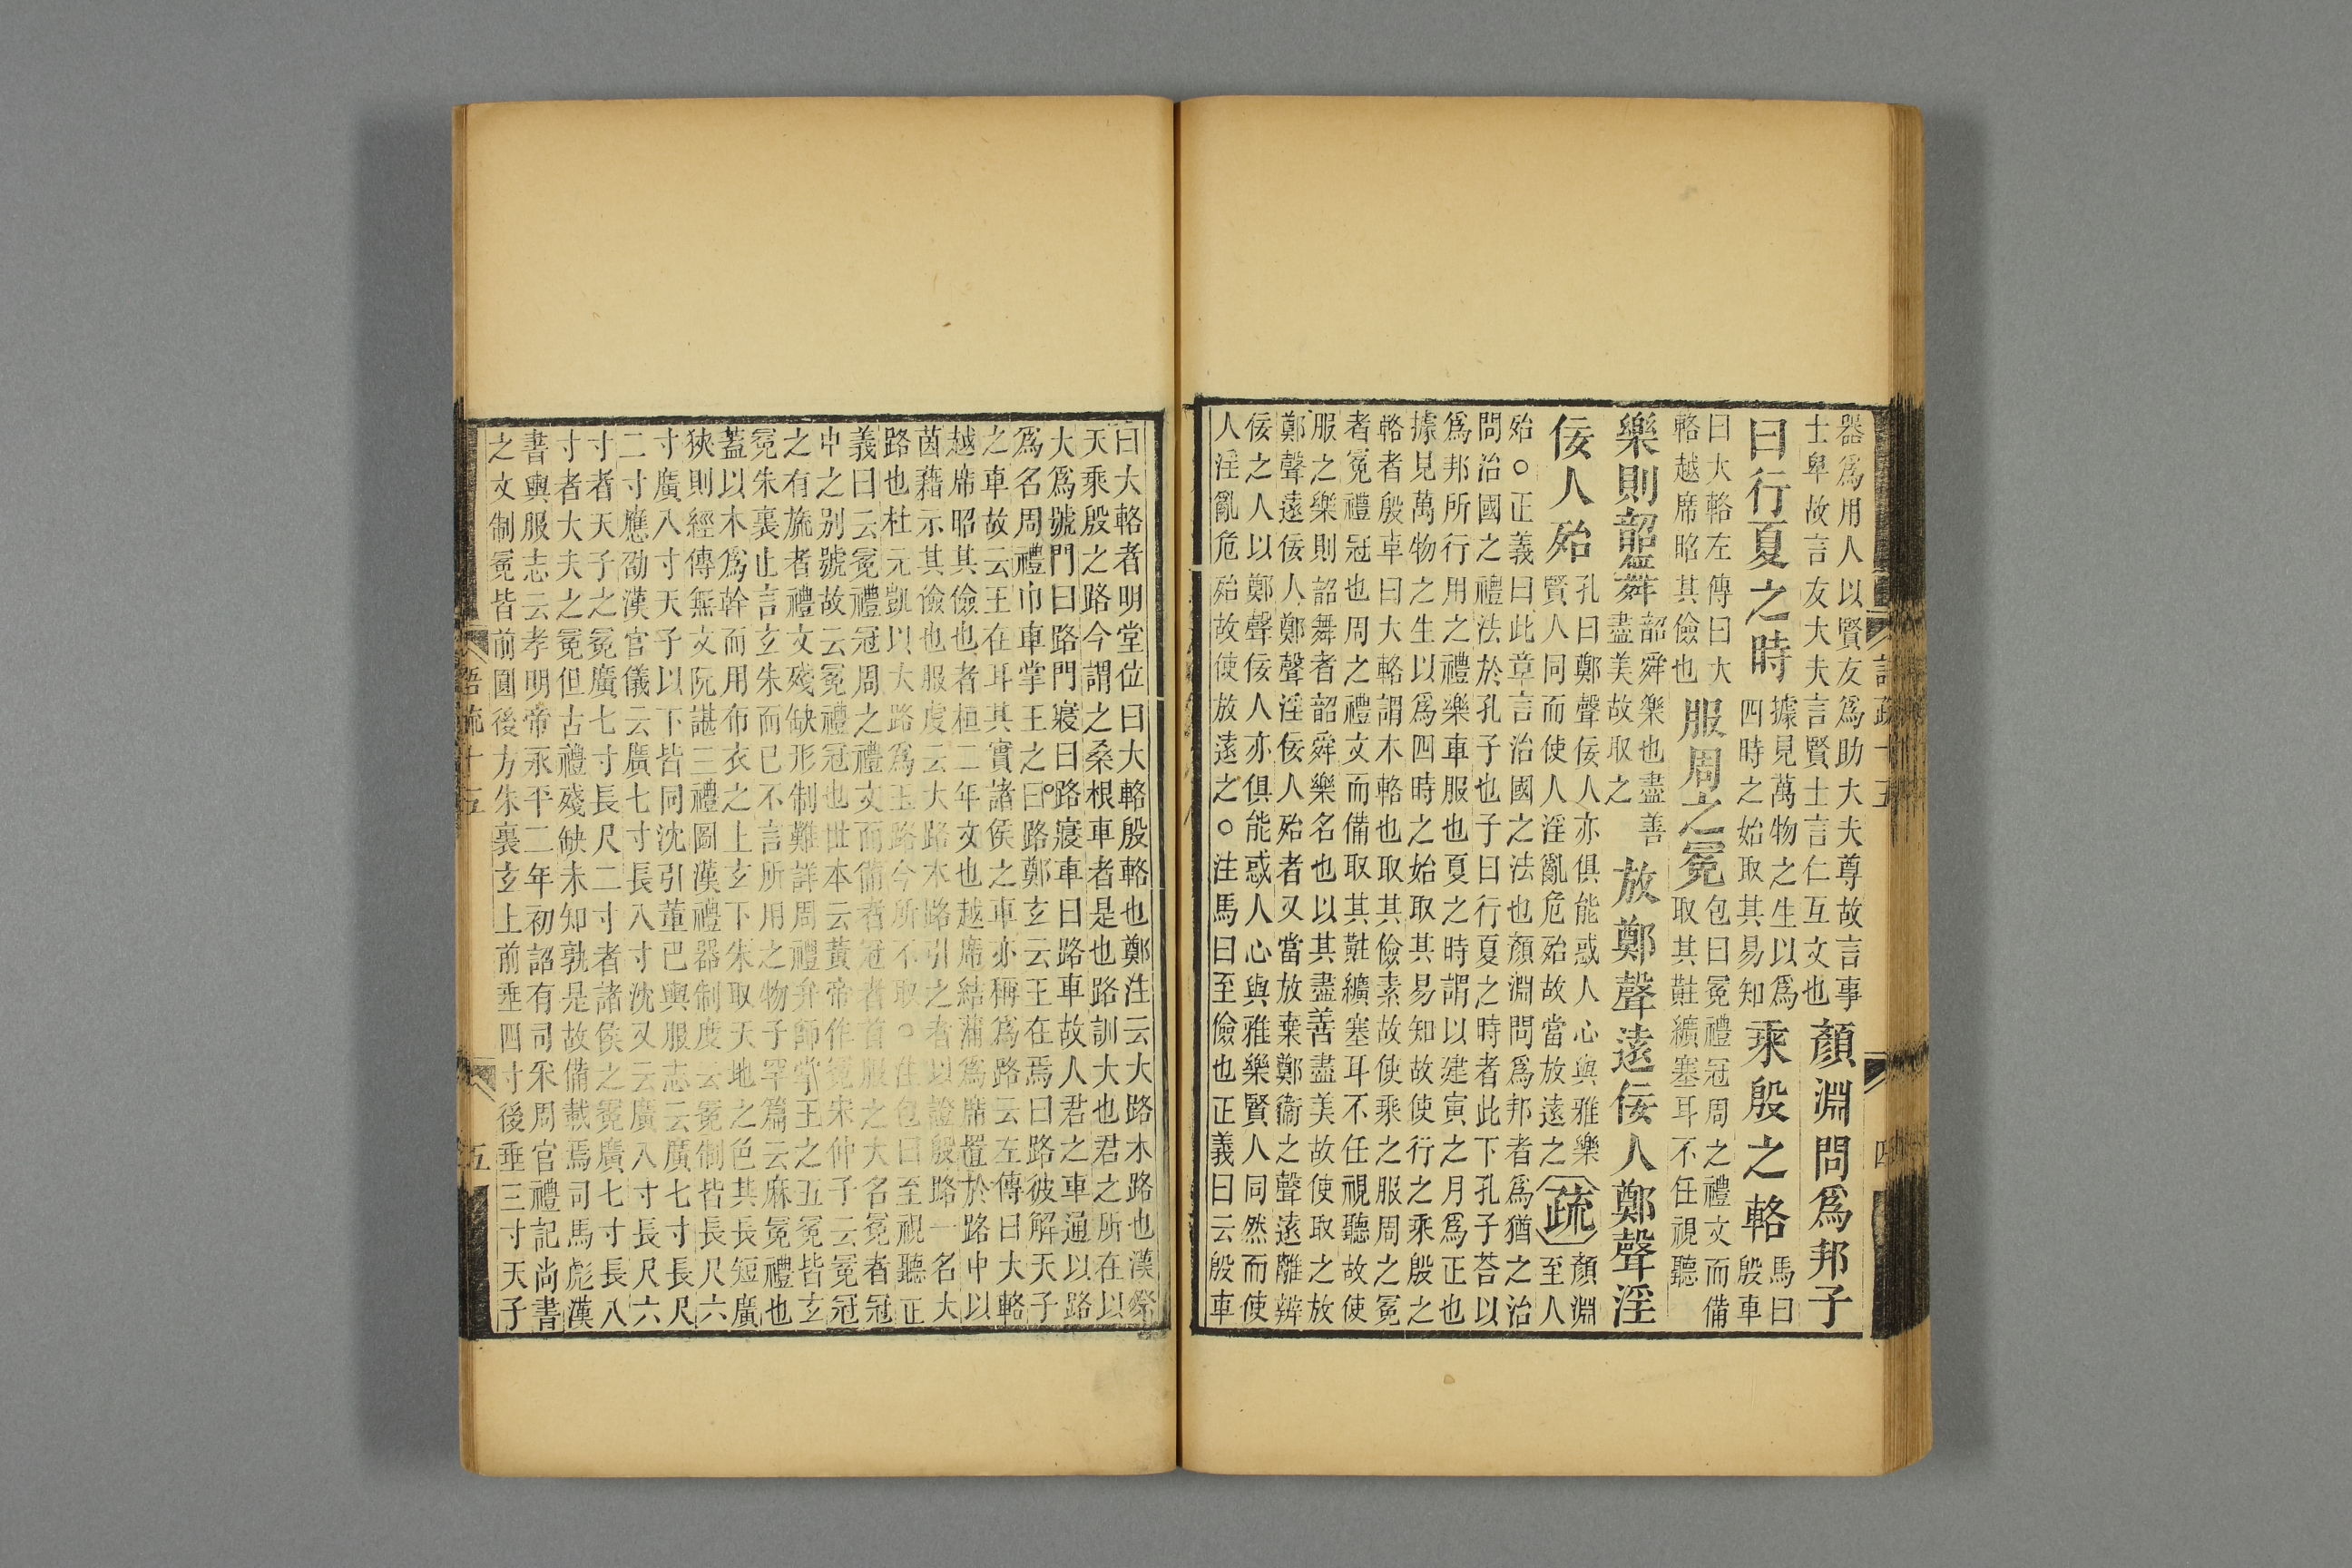 器爲用人以賢友爲助大夫尊故言事
士卑故言友大夫言賢士言仁互文也
顏淵問爲邦子
曰行夏之時
據見萬物之生以爲
四時之始取其易知
乘殷之輅
馬曰
殷車
曰大輅左傳曰大
輅越席昭其儉也
服周之冕
包曰冕禮冠周之禮文而備
取其黈纊塞耳不任視聽
樂則韶舞
韶舜樂也盡善
盡美故取之
放鄭聲遠佞人鄭聲淫
佞人殆
孔曰鄭聲佞人亦俱能惑人心與雅樂
賢人同而使人淫亂危殆故當放遠之
疏
顏淵
至人
殆○正義曰此章言治國之法也顏淵問爲邦者爲猶之治
問治國之禮法於孔子也子曰行夏之時者此下孔子荅以
爲邦所行用之禮樂車服也夏之時謂以建寅之月爲正也
據見萬物之生以爲四時之始取其易知故使行之乘殷之
輅者殷車曰大輅謂木輅也取其儉素故使乘之服周之冕
者冕禮冠也周之禮文而備取其黈纊塞耳不任視聽故使
服之樂則韶舞者韶舜樂名也以其盡善盡美故使取之放
鄭聲遠佞人鄭聲淫佞人殆者又當放棄鄭衞之聲遠離辨
佞之人以鄭聲佞人亦俱能惑人心與雅樂賢人同然而使
人淫亂危殆故使放遠之○注馬曰至儉也正義曰云殷車
曰大輅者明堂位曰大輅殷輅也鄭注云大路木路也漢祭
天乘殷之路今謂之桑根車者是也路訓大也君之所在以
大爲號門曰路門寢曰路寢車曰路車故人君之車通以路
爲名周禮巾車掌王之曰路鄭玄云王在焉曰路彼解天子
之車故云王在耳其實諸侯之車亦稱爲路云左傳曰大輅
越席昭其儉也者桓二年文也越席結蒲爲席置於路中以
茵藉示其儉也服虔云大路木路引之者以證殷路一名大
路也杜元凱以大路爲玉路今所不取○注包曰至視聽正
義曰云冕禮冠周之禮文而備者冠者首服之大名冕者冠
中之别號故云冕禮冠也世本云黃帝作冕宋仲子云冕冠
之有旒者禮文殘缺形制難詳周禮弁師掌王之五冕皆玄
冕朱裏止言玄朱而已不言所用之物子罕篇云麻冕禮也
蓋以木爲幹而用布衣之上玄下朱取天地之色其長短廣
狹則經傳無文阮諶三禮圖漢禮器制度云冕制皆長尺六
寸廣八寸天子以下皆同沈引董巴輿服志云廣七寸長尺
二寸應劭漢官儀云廣七寸長八寸沈又云廣八寸長尺六
寸者天子之冕廣七寸長尺二寸者諸侯之冕廣七寸長八
寸者大夫之冕但古禮殘缺未知孰是故備載焉司馬彪漢
書輿服志云孝明帝永平二年初詔有司采周官禮記尚書
之文制冕皆前圓後方朱裏玄上前垂四寸後垂三寸天子
五